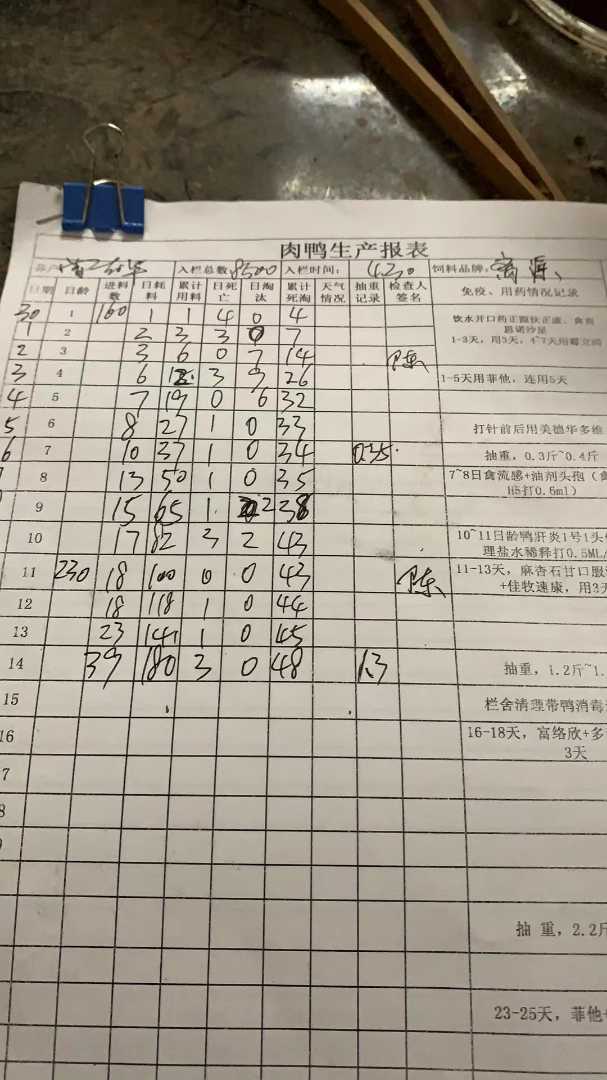 肉鸭生产报表
入栏总数: 8500 入栏时间: 4.30 饲料品牌:
日期 日龄 进料数 日耗料 累计用料 日死亡 日淘汰 累计死淘 天气情况 抽重记录 检查人签名 免疫、用药情况记录
30 1 160 1 1 4 0 4 饮水开口药
1 2 2 3 3 0 7 1-3天，用3天，4-7天用
2 3 3 6 0 7 14 陈
3 4 6 12 3 9 26 1-5天用菲他，连用5天
4 5 7 19 0 6 32
5 6 8 27 1 0 33 打针前后用美德华多维
6 7 10 37 1 0 34 0.35 抽重，0.3斤~0.4斤
8 13 50 1 0 35 7~8日禽流感+油剂头孢（
H5打0.6ml）
9 15 65 1 2 38
10 17 82 3 2 43 10~11日龄鸭肝炎1号1头
理盐水稀释打0.5ML/
11 230 18 100 0 0 43 陈 11-13天，麻杏石甘口服
+佳牧速康，用3天
12 18 118 1 0 44
13 23 141 1 0 45
14 39 180 3 0 48 1.3 抽重，1.2斤~1.
15 栏舍清理带鸭消毒
16 16-18天，富络欣+多
3天
7
8
抽 重，2.2斤
23-25天，菲他